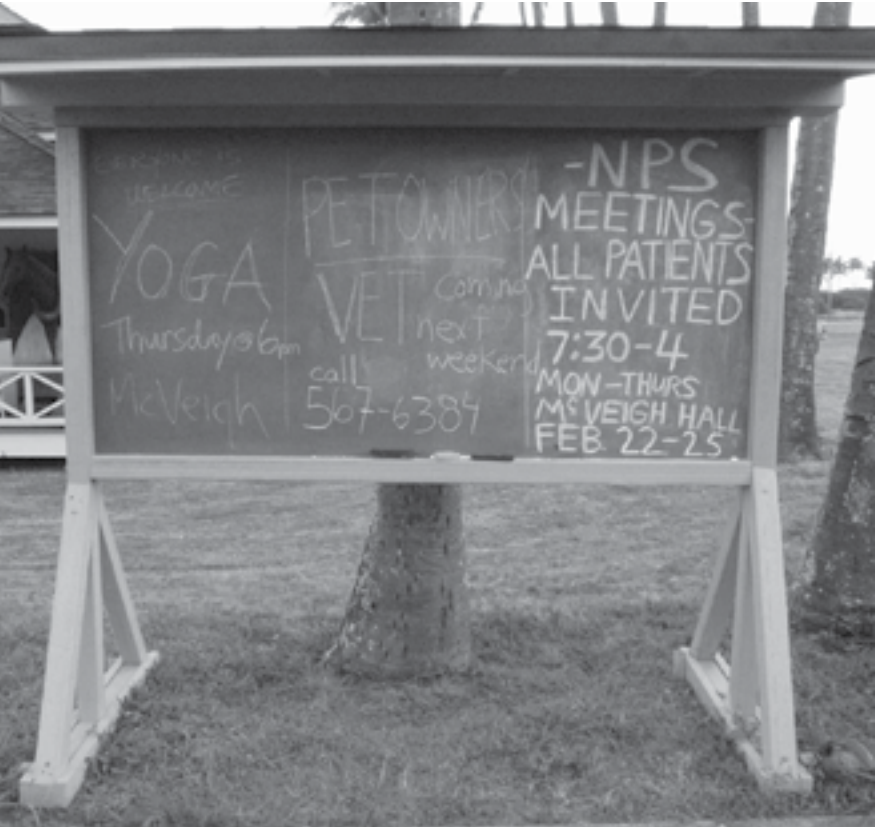 EVERYONE IS
WELCOME
YOGA
Thursday@6pm
McVeigh
PET OWNERS!
VET coming
next
weekend
call
567-6384
-NPS
MEETINGS-
ALL PATIENTS
INVITED
7:30-4
MON-THURS
McVEIGH HALL
FEB 22-25